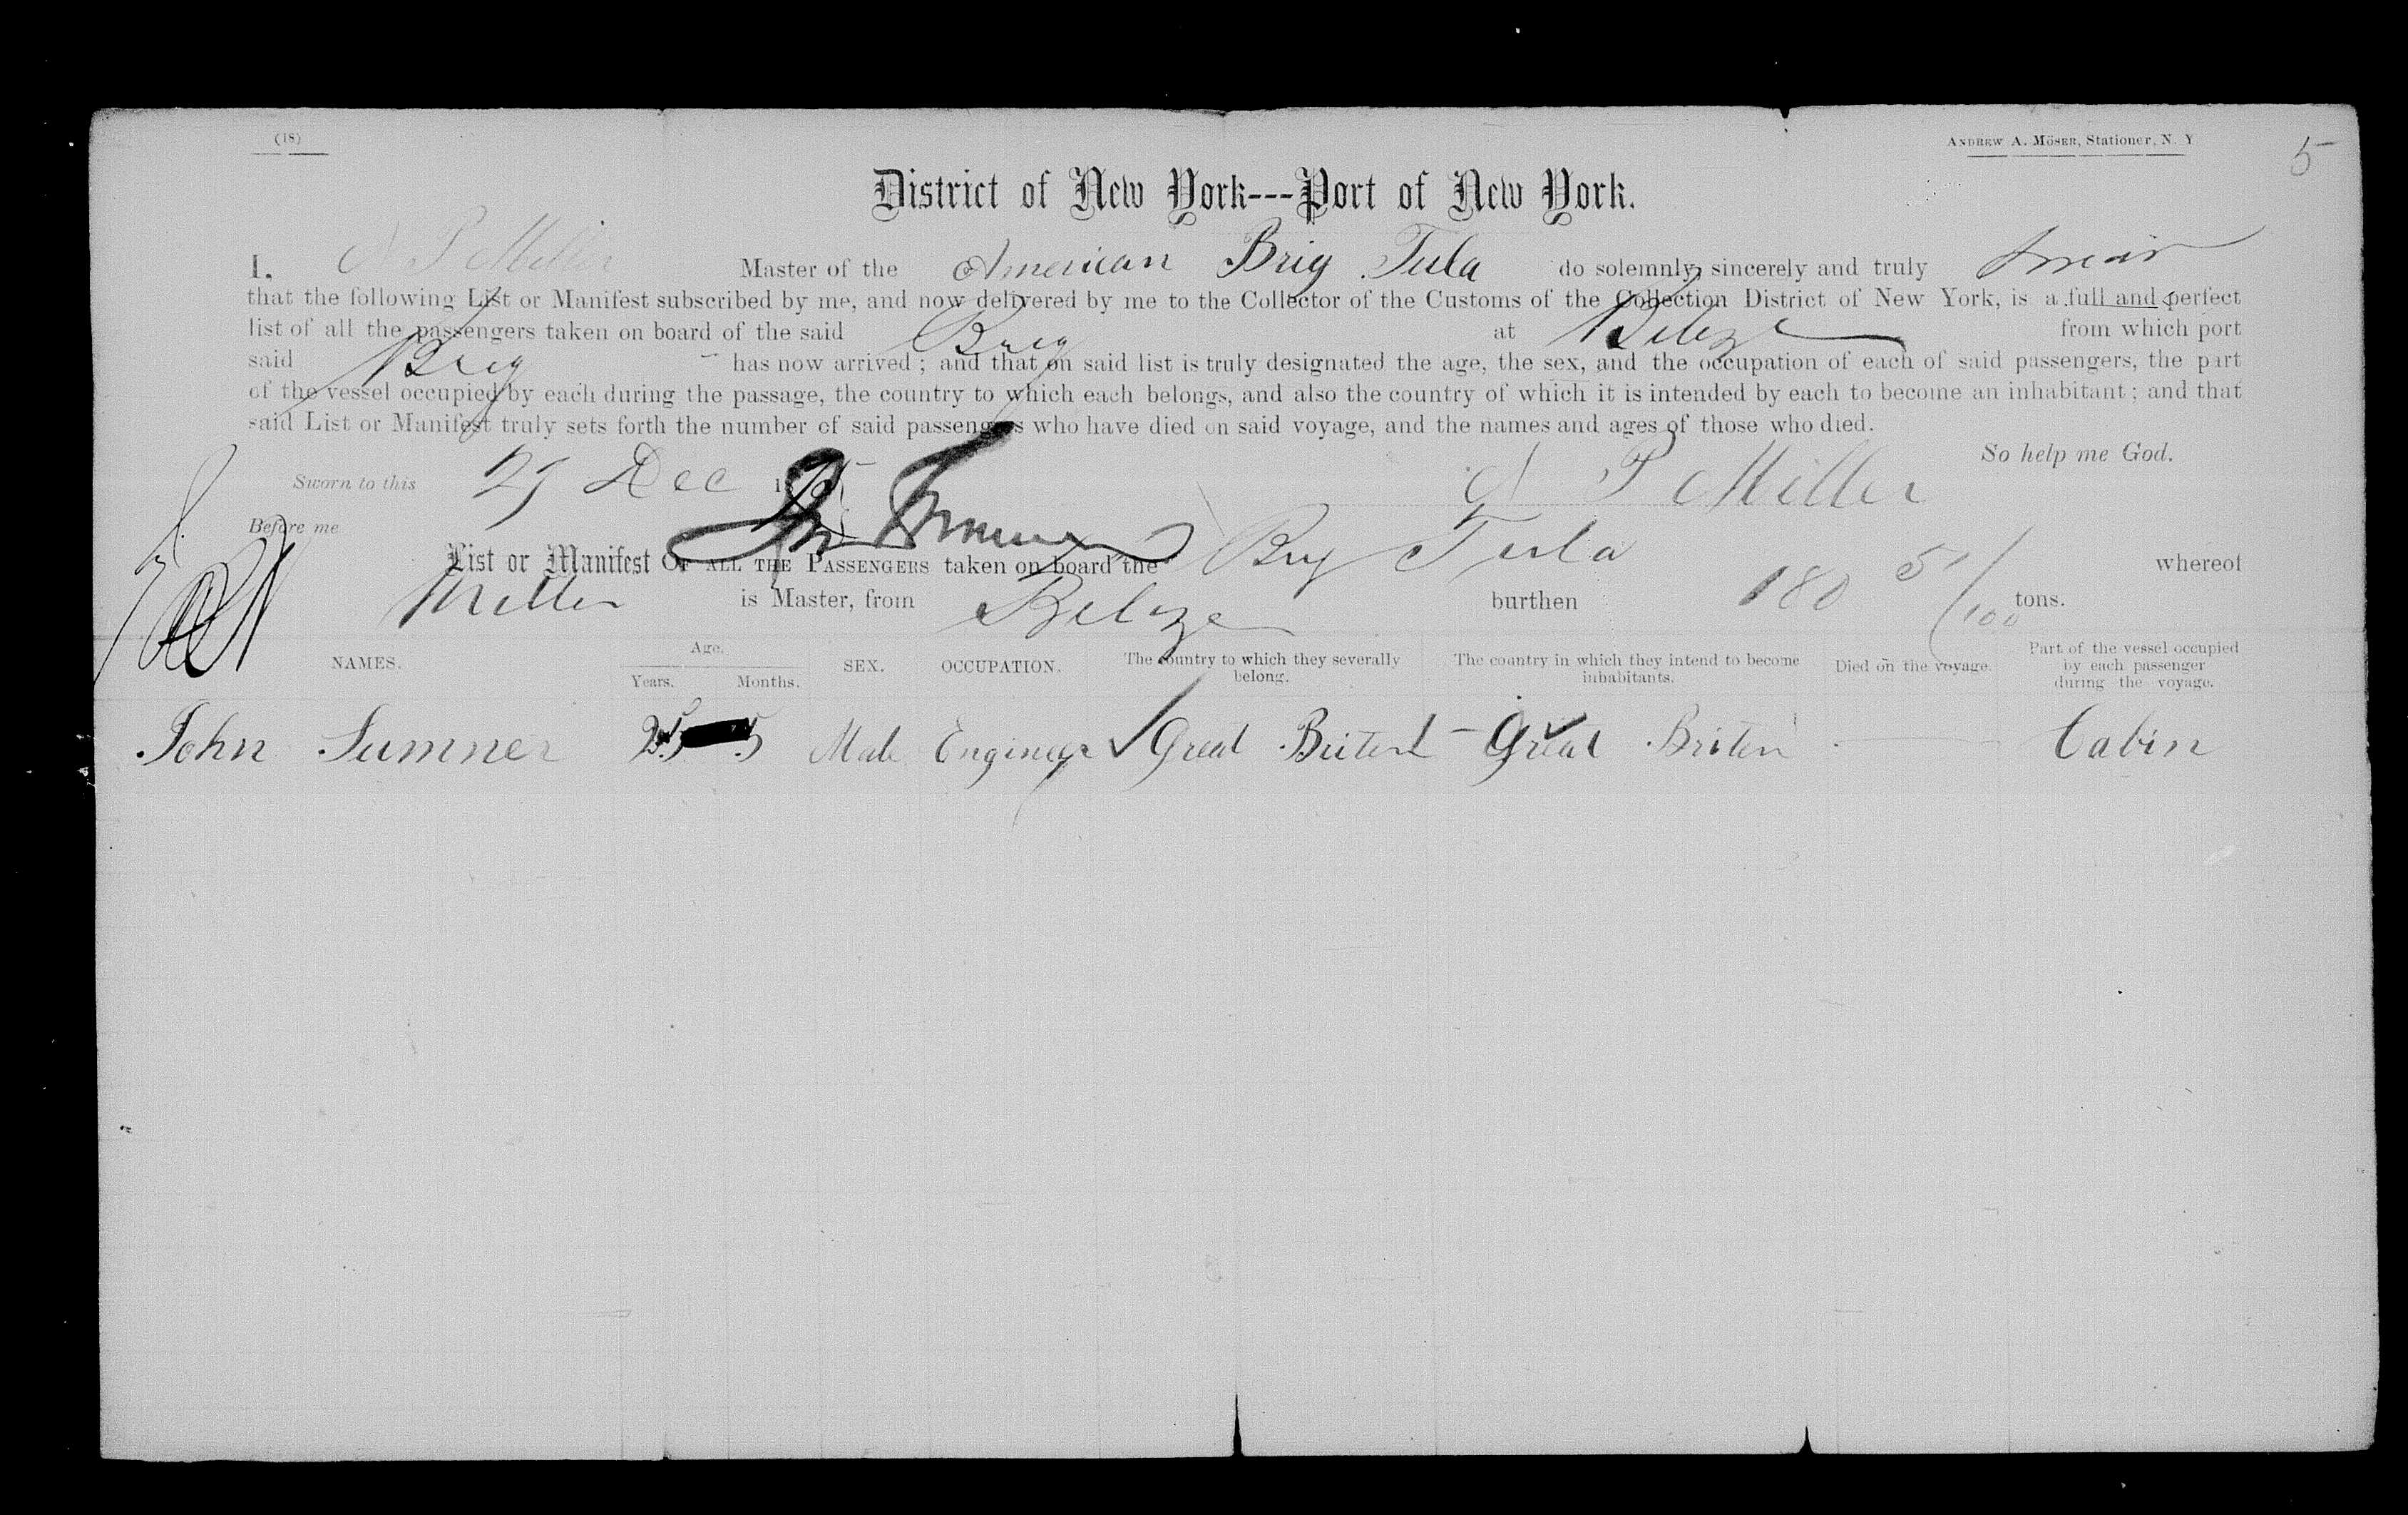 (18)
ANDREW A. MÖSER, Stationer, N. Y
5
District of New York---Port of New York.
I. P Miller Master of the American Brig Tula do solemnly, sincerely and truly swear
that the following List or Manifest subscribed by me, and now delivered by me to the Collector of the Customs of the Collection District of New York, is a full and perfect
list of all the passengers taken on board of the said Brig at Belize from which port
said Brig has now arrived; and that on said list is truly designated the age, the sex, and the occupation of each of said passengers, the part
of the vessel occupied by each during the passage, the country to which each belongs, and also the country of which it is intended by each to become an inhabitant; and that
said List or Manifest truly sets forth the number of said passengers who have died on said voyage, and the names and ages of those who died.
So help me God.
Sworn to this Dec P Miller
Before me
List or Manifest OF ALL THE PASSENGERS taken on board the Brig Tula whereof
Miller is Master, from Belize burthen 180 5/100 tons.
NAMES. Age. Years. Months. SEX. OCCUPATION. The country to which they severally belong. The country in which they intend to become inhabitants. Died on the voyage. Part of the vessel occupied by each passenger during the voyage.
John Sumner Male Engineer Great Great Briten Cabin